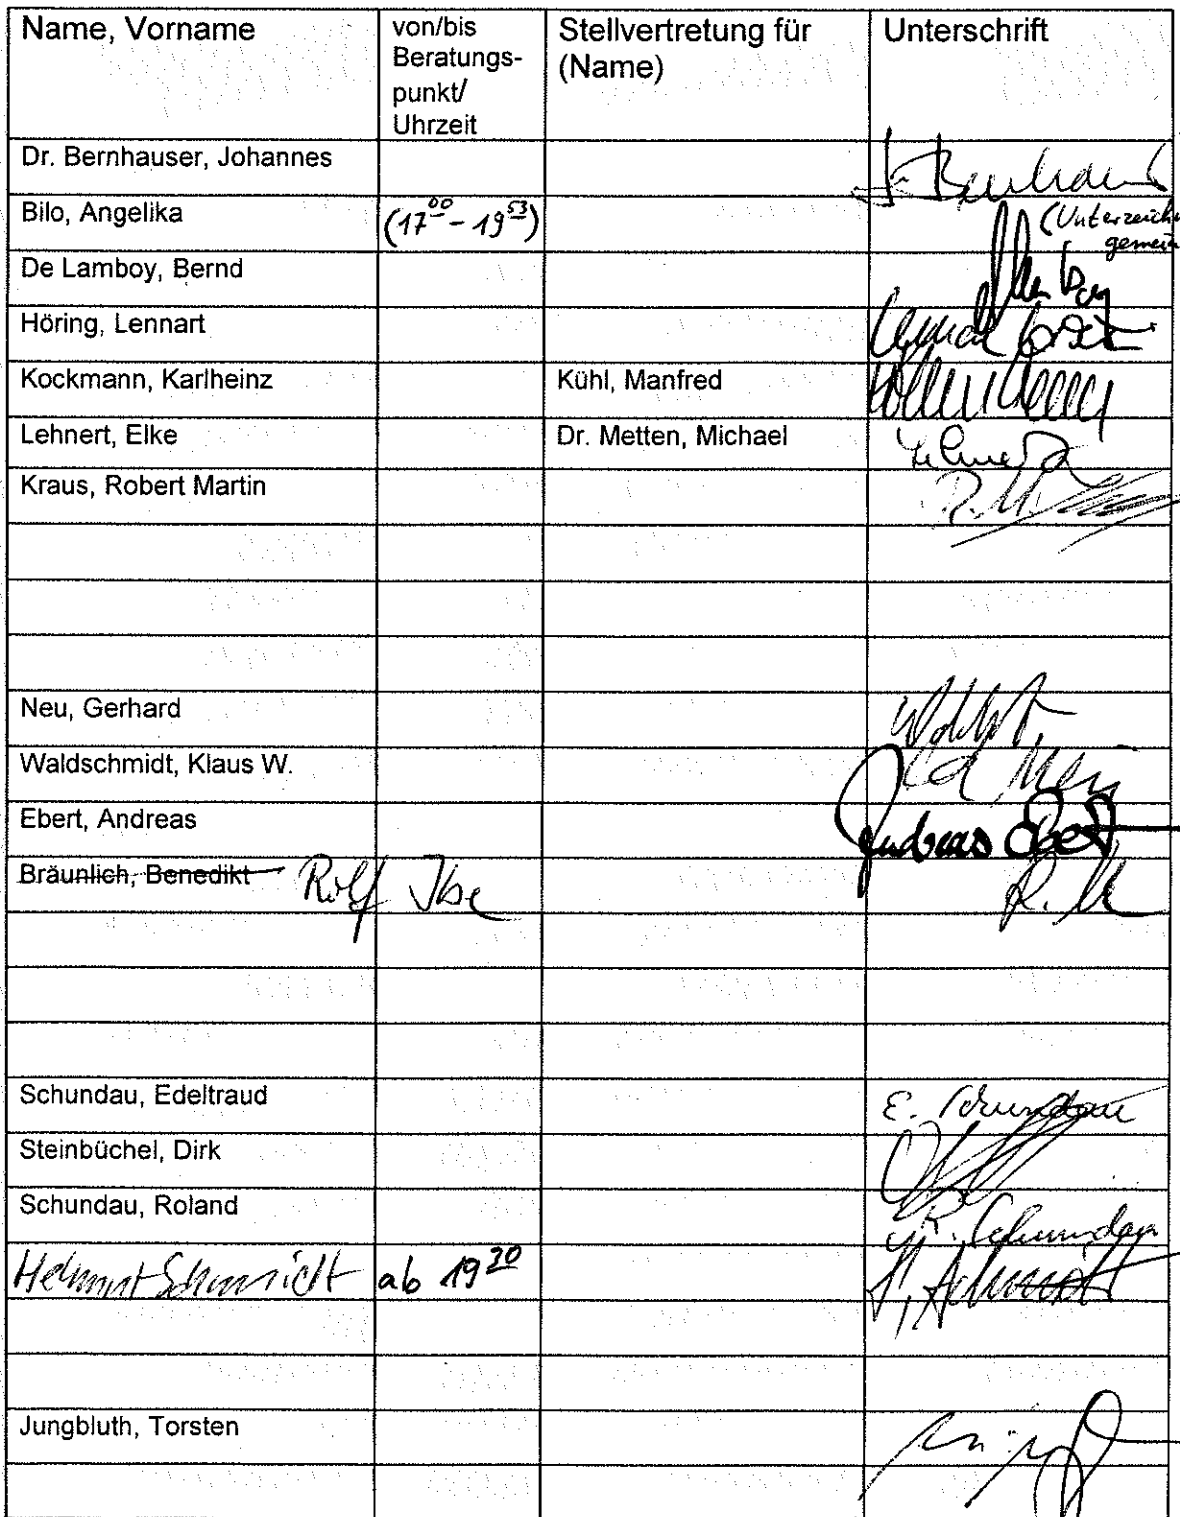 Name, Vorname von/bis Beratungs-punkt/ Uhrzeit Stellvertretung für (Name) Unterschrift
Dr. Bernhauser, Johannes
Bilo, Angelika (17⁰⁰ - 19⁵³) (Unterzeichn
gemein
De Lamboy, Bernd
Höring, Lennart
Kockmann, Karlheinz Kühl, Manfred
Lehnert, Elke Dr. Metten, Michael Lehnert
Kraus, Robert Martin
Neu, Gerhard
Waldschmidt, Klaus W.
Ebert, Andreas Andreas Ebert
Bräunlich, Benedikt Rolf Ibe
Schundau, Edeltraud E. Schundau
Steinbüchel, Dirk
Schundau, Roland R. Schundau
Helmut Schmidt ab 19³⁰ H. Schmidt
Jungbluth, Torsten